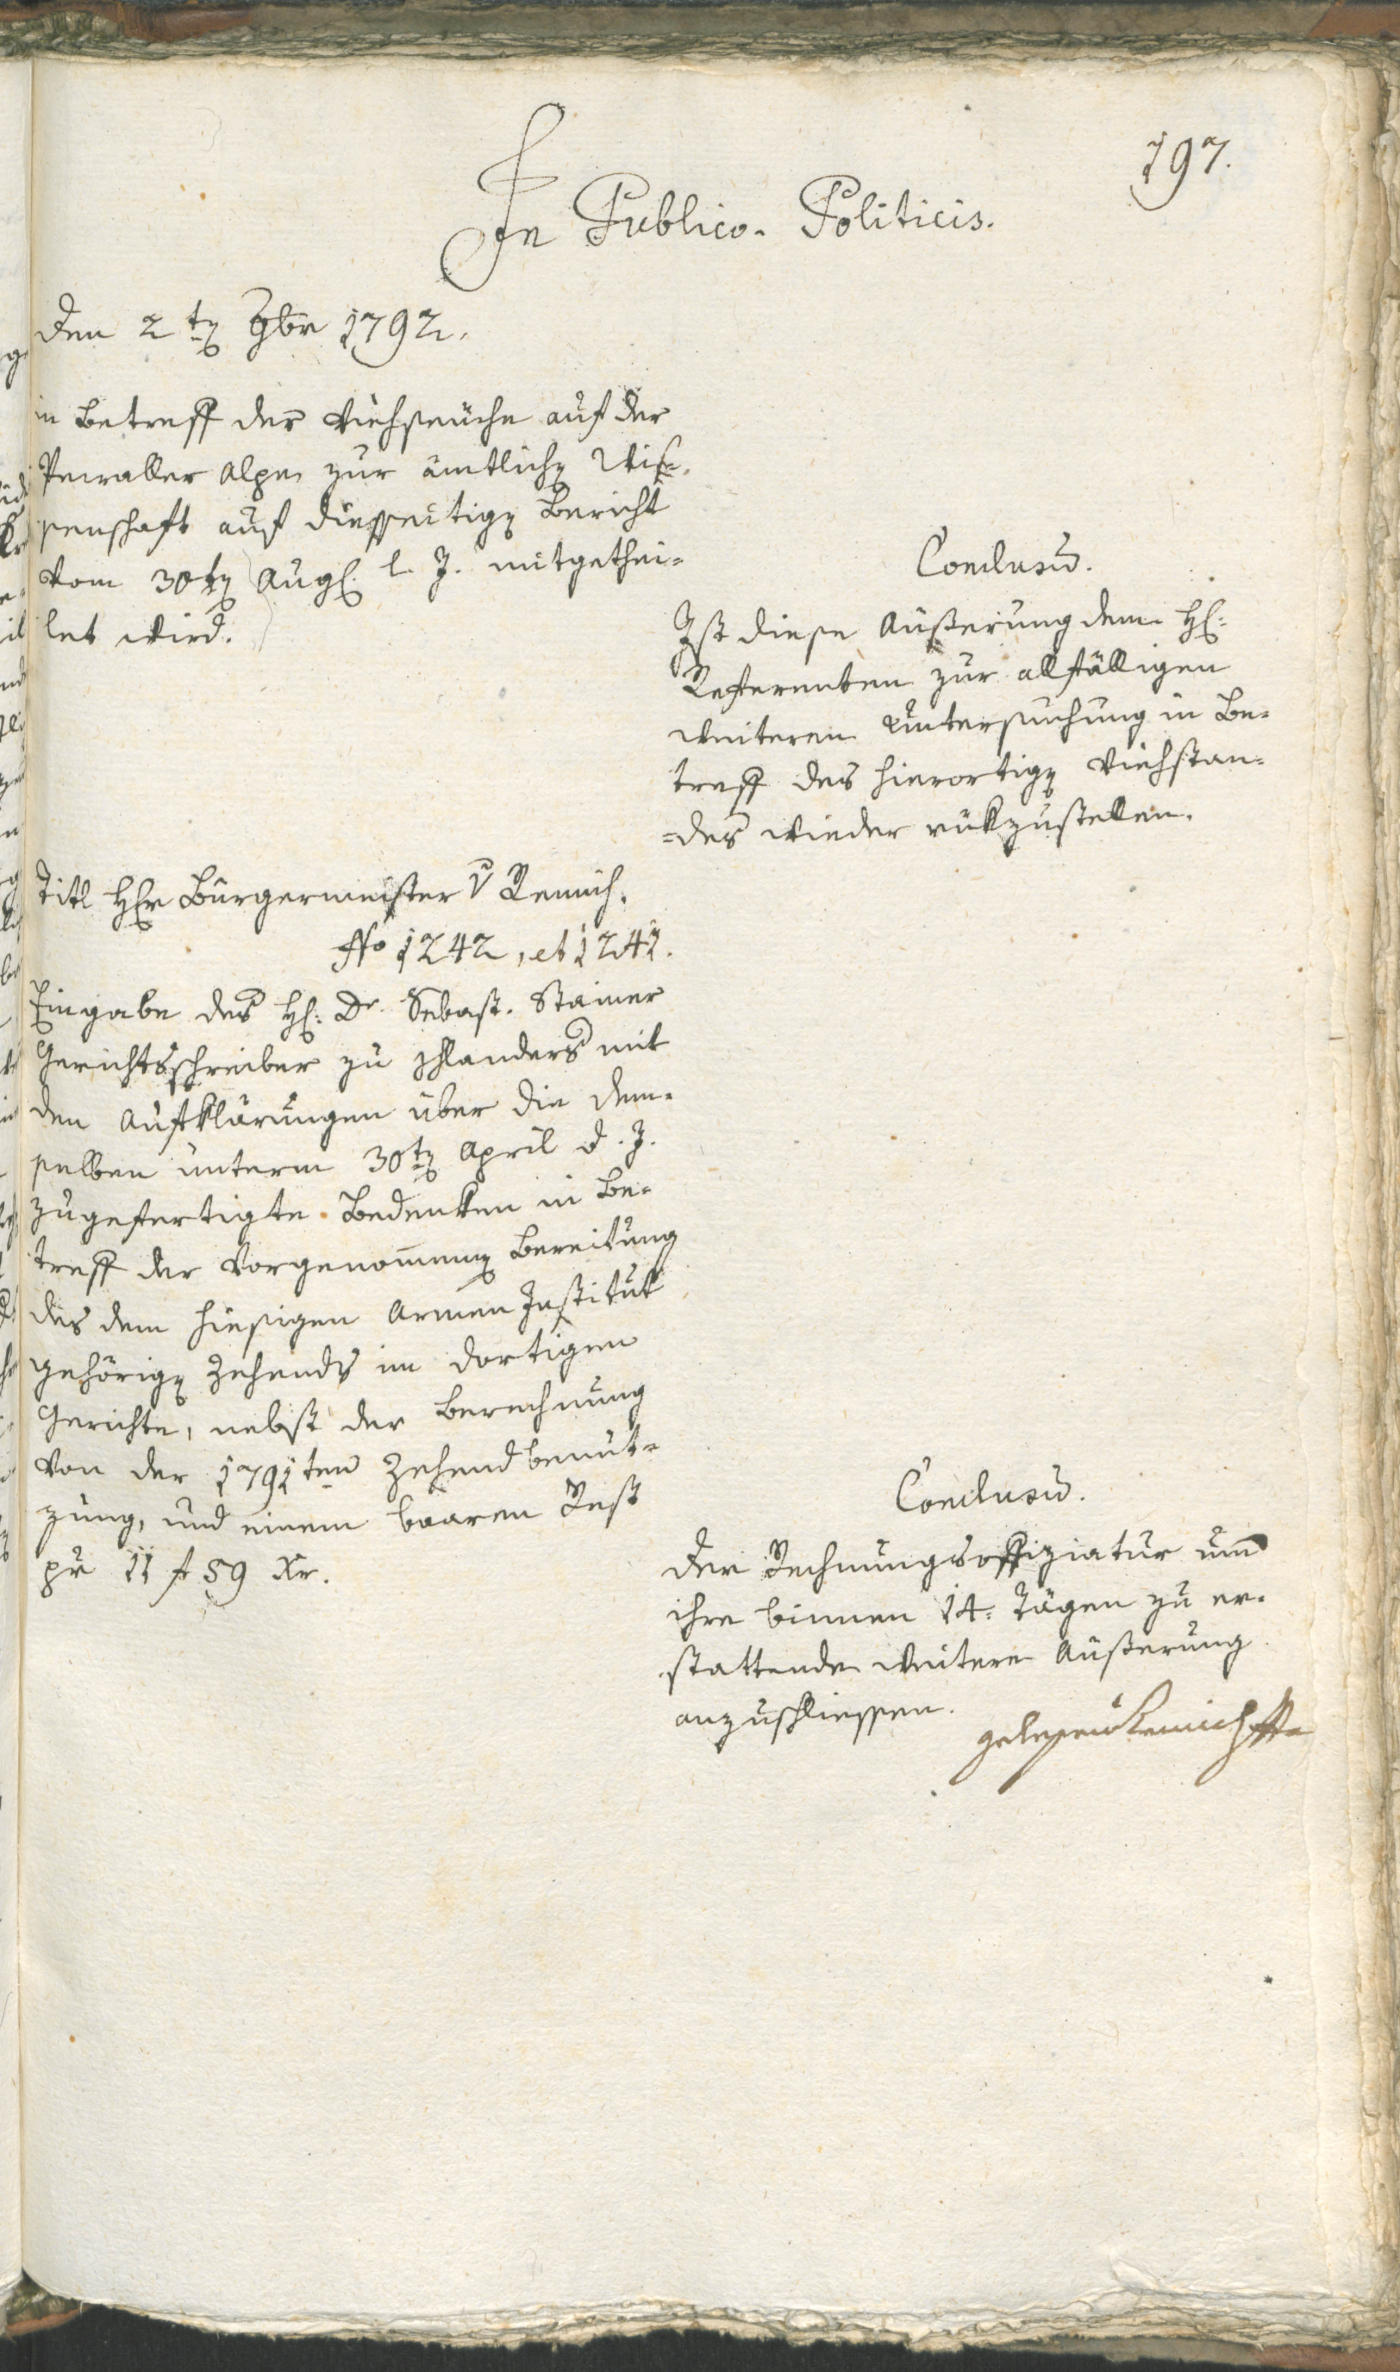 197.
In Publico-Politicis.
Den 2ten 7br 1792.
in Betreff der Viehseuche auf der
Alpe zur ämtlichen Wis-
senschaft auf diesseitigen Bericht
vom 30ten Aug. l. J. mitgethei-
let wird.
Conclusum.
Ist diese Äußerung dem H:
Referenten zur allfälligen
weiteren Untersuchung in Be-
treff des hierortigen Viehstan-
=des wieder rükzustellen.
Titl Hr Bürgermeister v Remich.
No 1242, et 1241.
Eingabe des H: Dr. Sebast. Stainer
Gerichtsschreiber zu Schlanders mit
den Aufklärungen über die dem-
selben unterm 30ten April d. J.
zugefertigte Bedenken in Be-
treff der vorgenommenen Bereitung
des dem hiesigen Armen Institut
gehörigen Zehends im dortigen
Gerichte, nebst der Berechnung
von der 1791ten Zehendbenut-
zung, und einem baaren Rest
pr 11 f 59 Xr.
Conclusum.
Der Rechnungsoffiziatur um
ihre binnen 14. Tägen zu er-
stattende weitere Äußerung
anzuschliessen.
gelesen Remich